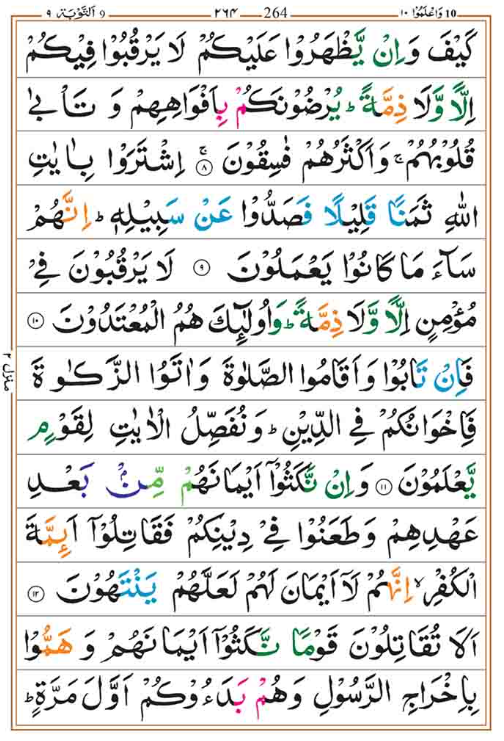 10 وَاعْلَمُوْا ١٠ 264 ٢٦٤ 9 اَلتَّوْبَة ٩
كَيْفَ وَاِنْ يَّظْهَرُوْا عَلَيْكُمْ لَا يَرْقُبُوْا فِيْكُمْ
اِلًّا وَّلَا ذِمَّةً ؕ يُرْضُوْنَكُمْ بِاَفْوَاهِهِمْ وَ تَاْبٰى
قُلُوْبُهُمْ ۚ وَاَكْثَرُهُمْ فٰسِقُوْنَ ۚ‏ ٨ اِشْتَرَوْا بِاٰيٰتِ
اللّٰهِ ثَمَنًا قَلِيْلًا فَصَدُّوْا عَنْ سَبِيْلِهٖ ؕ اِنَّهُمْ
سَآءَ مَا كَانُوْا يَعْمَلُوْنَ ٩ لَا يَرْقُبُوْنَ فِىْ
مُؤْمِنٍ اِلًّا وَّلَا ذِمَّةً ؕ وَاُولٰٓئِكَ هُمُ الْمُعْتَدُوْنَ ١٠
فَاِنْ تَابُوْا وَاَقَامُوا الصَّلٰوةَ وَاٰتَوُا الزَّكٰوةَ
فَاِخْوَانُكُمْ فِى الدِّيْنِ ؕ وَنُفَصِّلُ الْاٰيٰتِ لِقَوْمٍ
يَّعْلَمُوْنَ ١١ وَاِنْ نَّكَثُوْۤا اَيْمَانَهُمْ مِّنْۢ بَعْدِ
عَهْدِهِمْ وَطَعَنُوْا فِىْ دِيْنِكُمْ فَقَاتِلُوْۤا اَئِمَّةَ
الْكُفْرِ ۙ اِنَّهُمْ لَاۤ اَيْمَانَ لَهُمْ لَعَلَّهُمْ يَنْتَهُوْنَ ١٢
اَلَا تُقَاتِلُوْنَ قَوْمًا نَّكَثُوْۤا اَيْمَانَهُمْ وَ هَمُّوْا
بِاِخْرَاجِ الرَّسُوْلِ وَهُمْ بَدَءُوْكُمْ اَوَّلَ مَرَّةٍ ؕ
منزل ٢